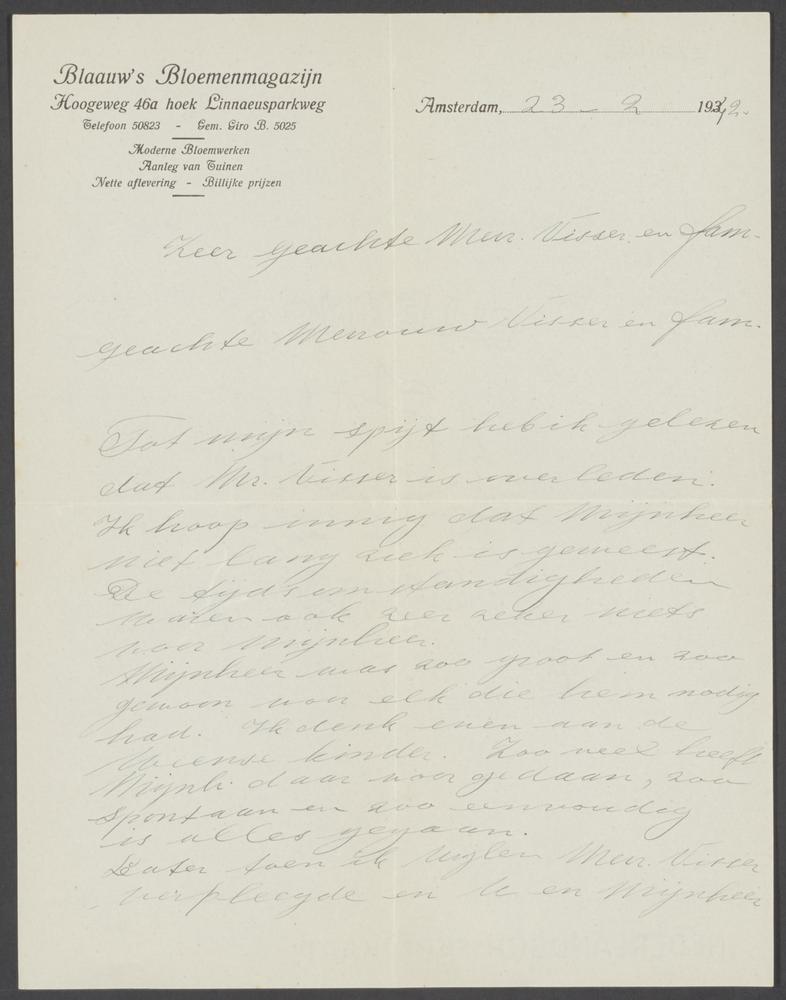 Blaauw's Bloemenmagazijn
Hoogeweg 46a hoek Linnaeusparkweg
Telefoon 50823 - Gem. Giro B. 5025
Moderne Bloemwerken
Aanleg van Tuinen
Nette aflevering - Billijke prijzen
Amsterdam, 23 - 2 1942.
Zeer geachte Mevr. Visser en fam-
geachte Mevrouw Visser en fam.
Tot mijn spijt heb ik gelezen
dat Mr. Visser is overleden.
Ik hoop innig dat Mijnheer
niet lang ziek is geweest.
De tijdsomstandigheden
waren ook zeer zeker niets
voor Mijnheer.
Mijnheer was zoo groot en zoo
gewoon voor elk die hem nodig
had. Ik denk even aan de
Weense kinder. Zoo veel heeft
Mijnh. daar voor gedaan, zoo
spontaan en zoo eenvoudig
is alles gegaan.
Later toen ik wijlen Mevr. Visser
verpleegde en U en Mijnheer